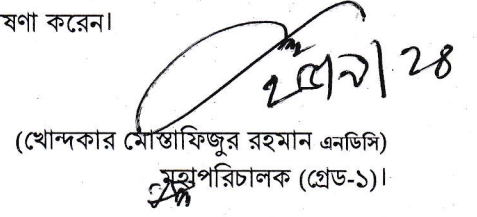 ষণা করেন।
(খোন্দকার মোস্তাফিজুর রহমান এনডিসি)
মহাপরিচালক (গ্রেড-১)।